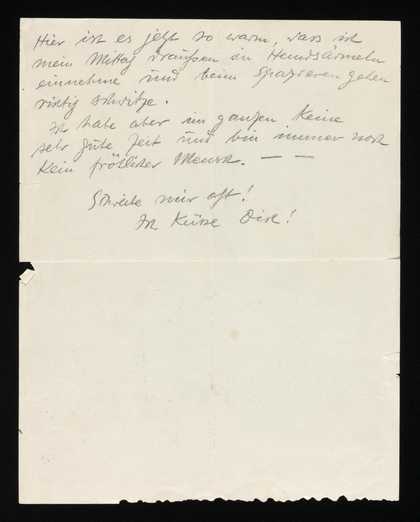 Hier ist es jetzt so warm, dass ich
mein Mittag draußen in Hemdsärmeln
einnehme und beim Spazierengehen
richtig schwitze.
Ich habe aber im ganzen keine
sehr gute Zeit und bin immer noch
kein fröhlicher Mensch. — —
Schreibe mir oft!
Ich küsse Dich!